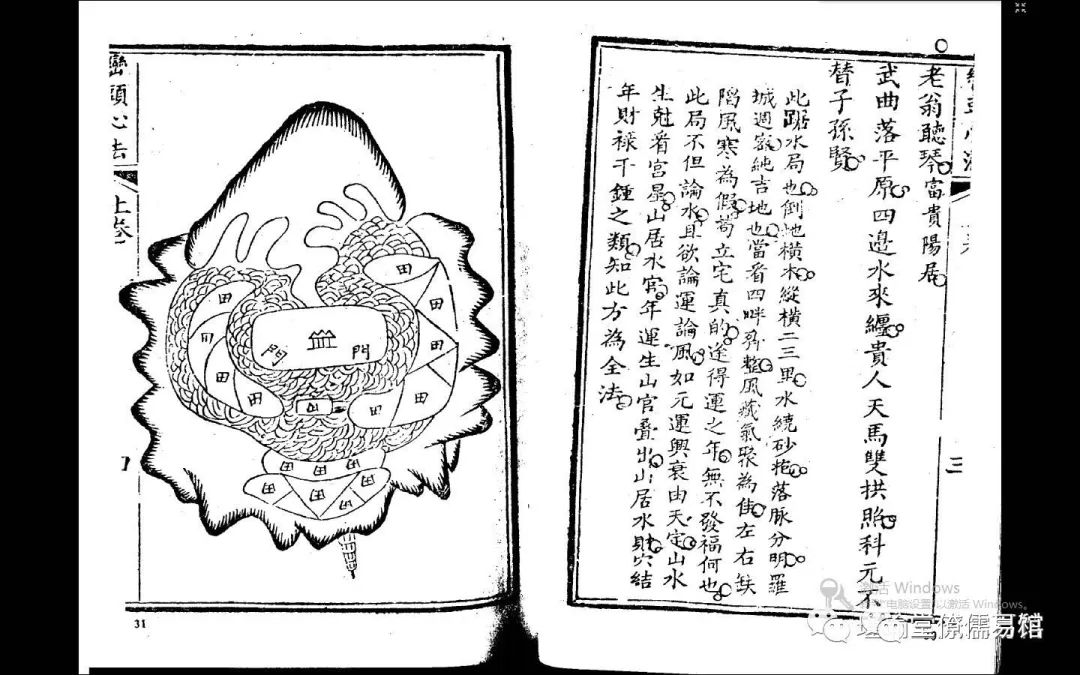 老翁聽琴富貴陽居
武曲落平原四邊水來纏貴人天馬雙拱照科元不
替子孫賢
此踞水局也倒地橫木縱橫二三里水繞砂抱落脉分明羅
城週密純吉地也當看四畔齊整風藏氣聚為佳左右缺
陷風寒為假苟立宅真的途得運之年無不發福何也
此局不但論水且欲論運論風如元運興衰由天定山水
生尅看宮星山居水宮年運生山官叠出山居水財穴結
年財祿千鍾之類知此方為全法
三
巒頭心法
上卷
田
田
田
田
田
門
門
田
田
田
田
田
田
田
田
田
田
31
激活 Windows
电脑设置以激活 Windows。
堂僚儒易馆